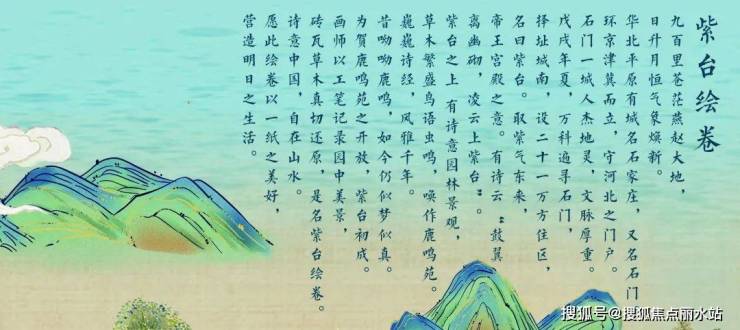 紫台绘卷
九百里苍茫燕赵大地，
日升月恒气象焕新。
华北平原有城名石家庄，又名石门
环京津冀而立，守河北之门户。
石门一城人杰地灵，文脉厚重。
戊戌年夏，万科遍寻石门，
择址城南，设二十一万方住区，
名曰紫台。取紫气东来，
帝王宫殿之意。有诗云“鼓翼
离幽砌，凌云上紫台”。
紫台之上有诗意园林景观，
草木繁盛鸟语虫鸣，唤作鹿鸣苑。
巍巍诗经，风雅千年。
昔呦呦鹿鸣，如今仍似梦似真。
为贺鹿鸣苑之开放，紫台初成。
画师以工笔记录园中美景，
砖瓦草木真切还原，是名紫台绘卷。
诗意中国，自在山水。
愿此绘卷以一纸之美好，
营造明日之生活。
搜狐号@搜狐焦点丽水站